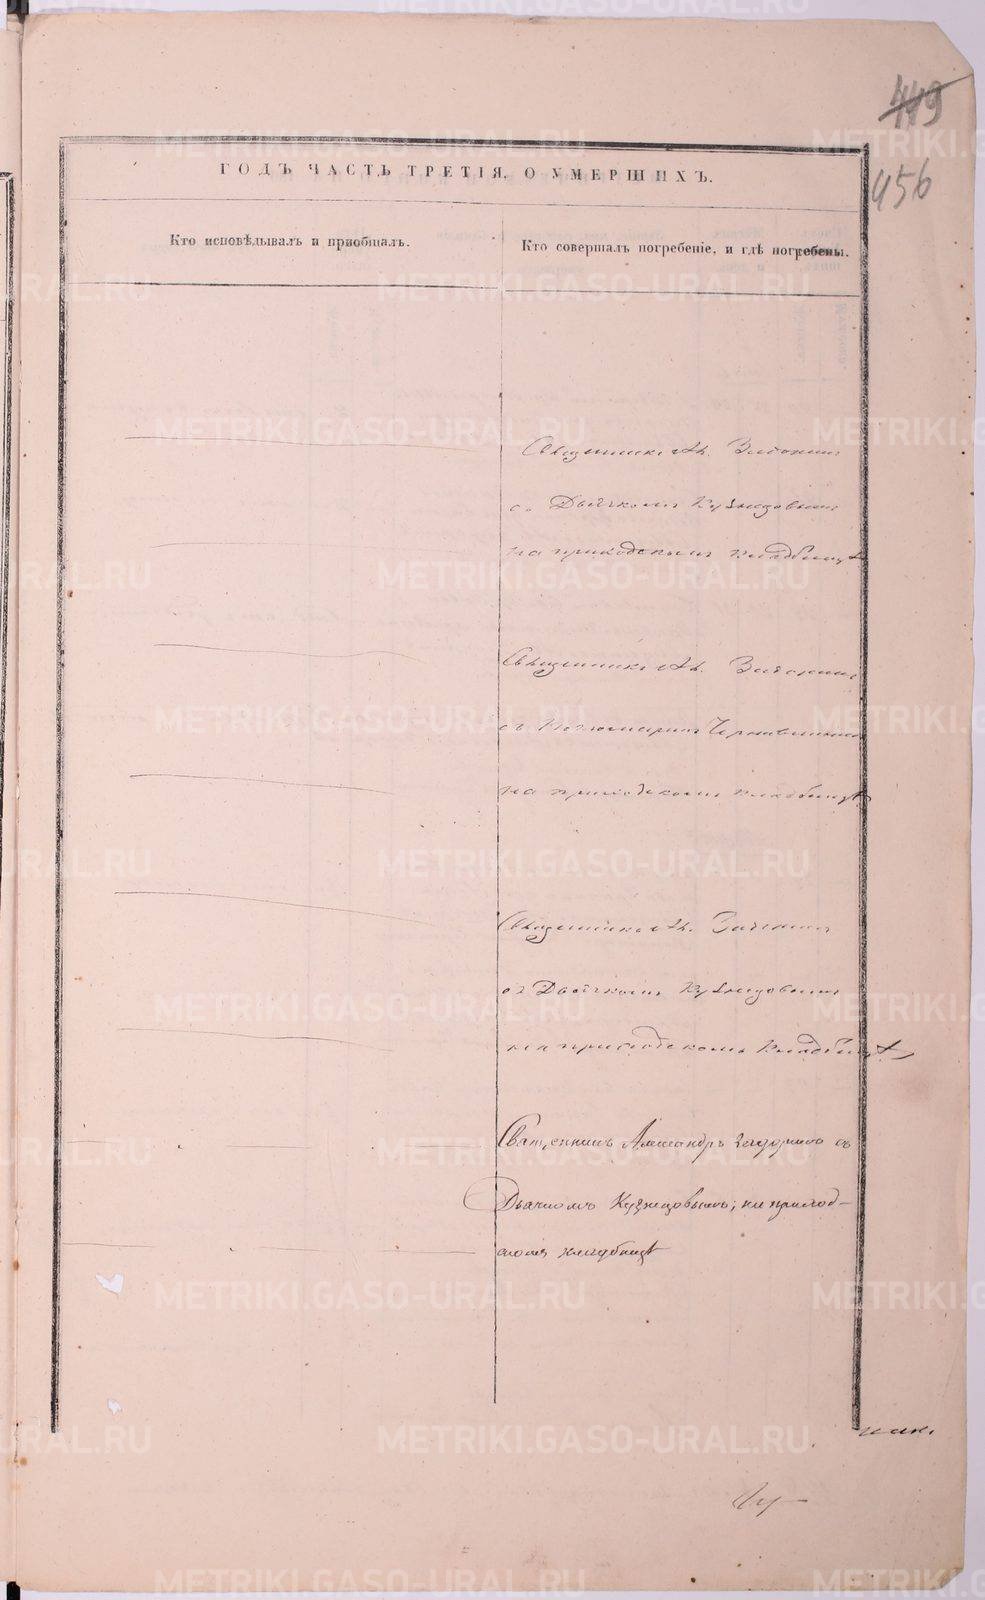 449
456
ГОДЪ ЧАСТЬ ТРЕТІЯ, О УМЕРШИХЪ.
Кто исповѣдывалъ и пріобщалъ.
Кто совершалъ погребеніе, и гдѣ погребены.
Священникъ Ал.
съ Дьячкомъ Кузнецовымъ
на приходскомъ кладбищѣ
Священникъ Ал.
съ Пономаремъ
на приходскомъ кладбищѣ
Священникъ Ал.
съ Дьячкомъ Кузнецовымъ
на приходскомъ кладбищѣ
Священникъ Александръ съ
Дьячкомъ Кузнецовымъ; на приход-
скомъ кладбищѣ
METRIKI.GASO-URAL.RU